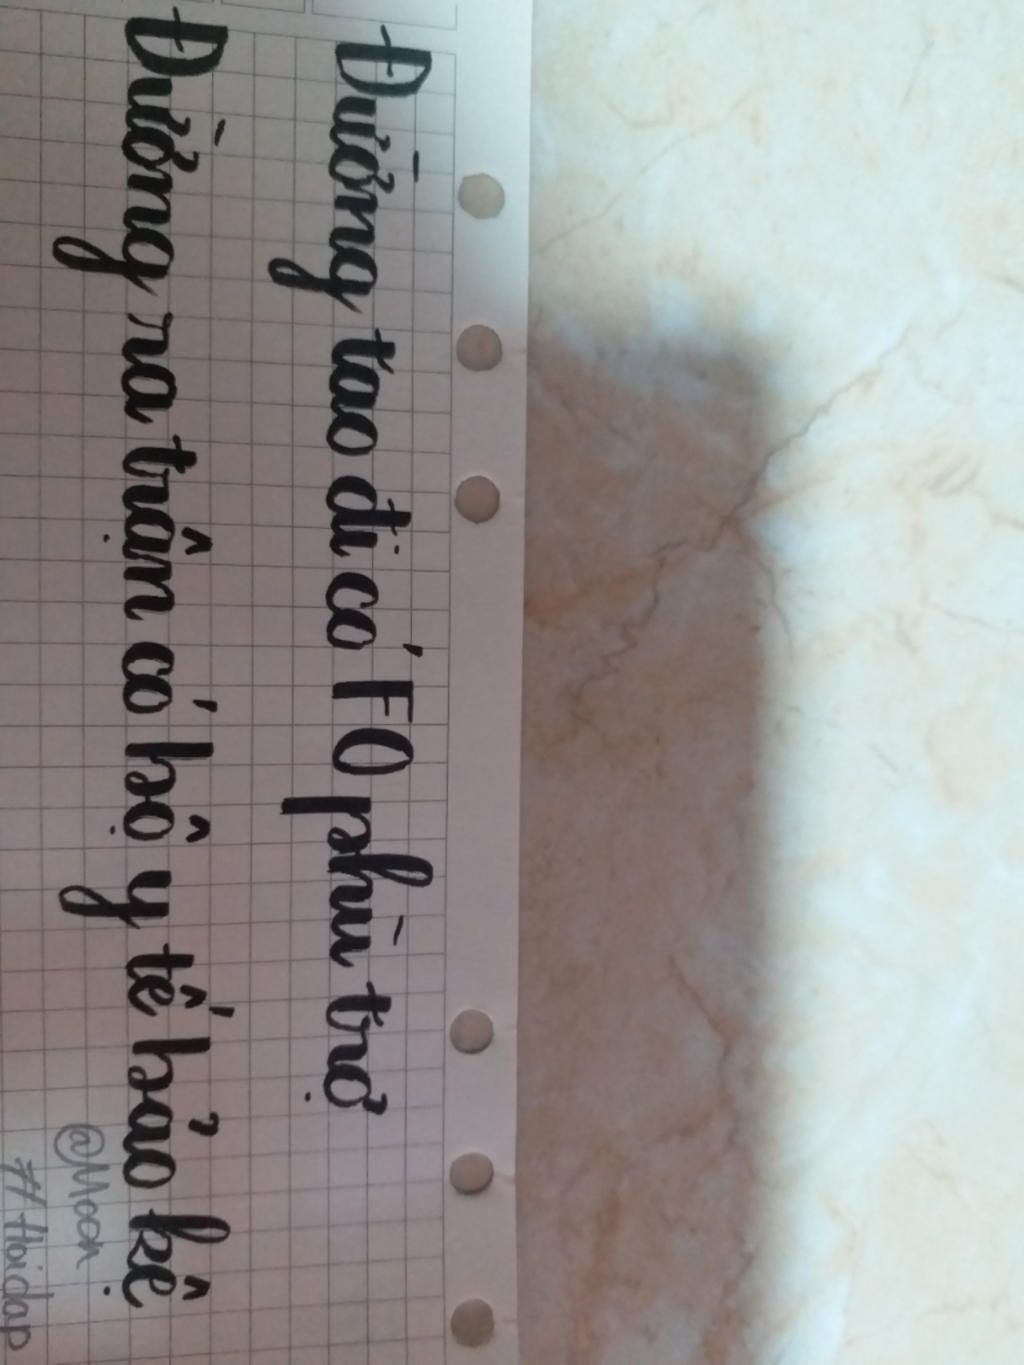 Đường tao đi có F0 phù trợ
Đường ra trận có bộ y tế bảo kê
@Moon
#Hoidap